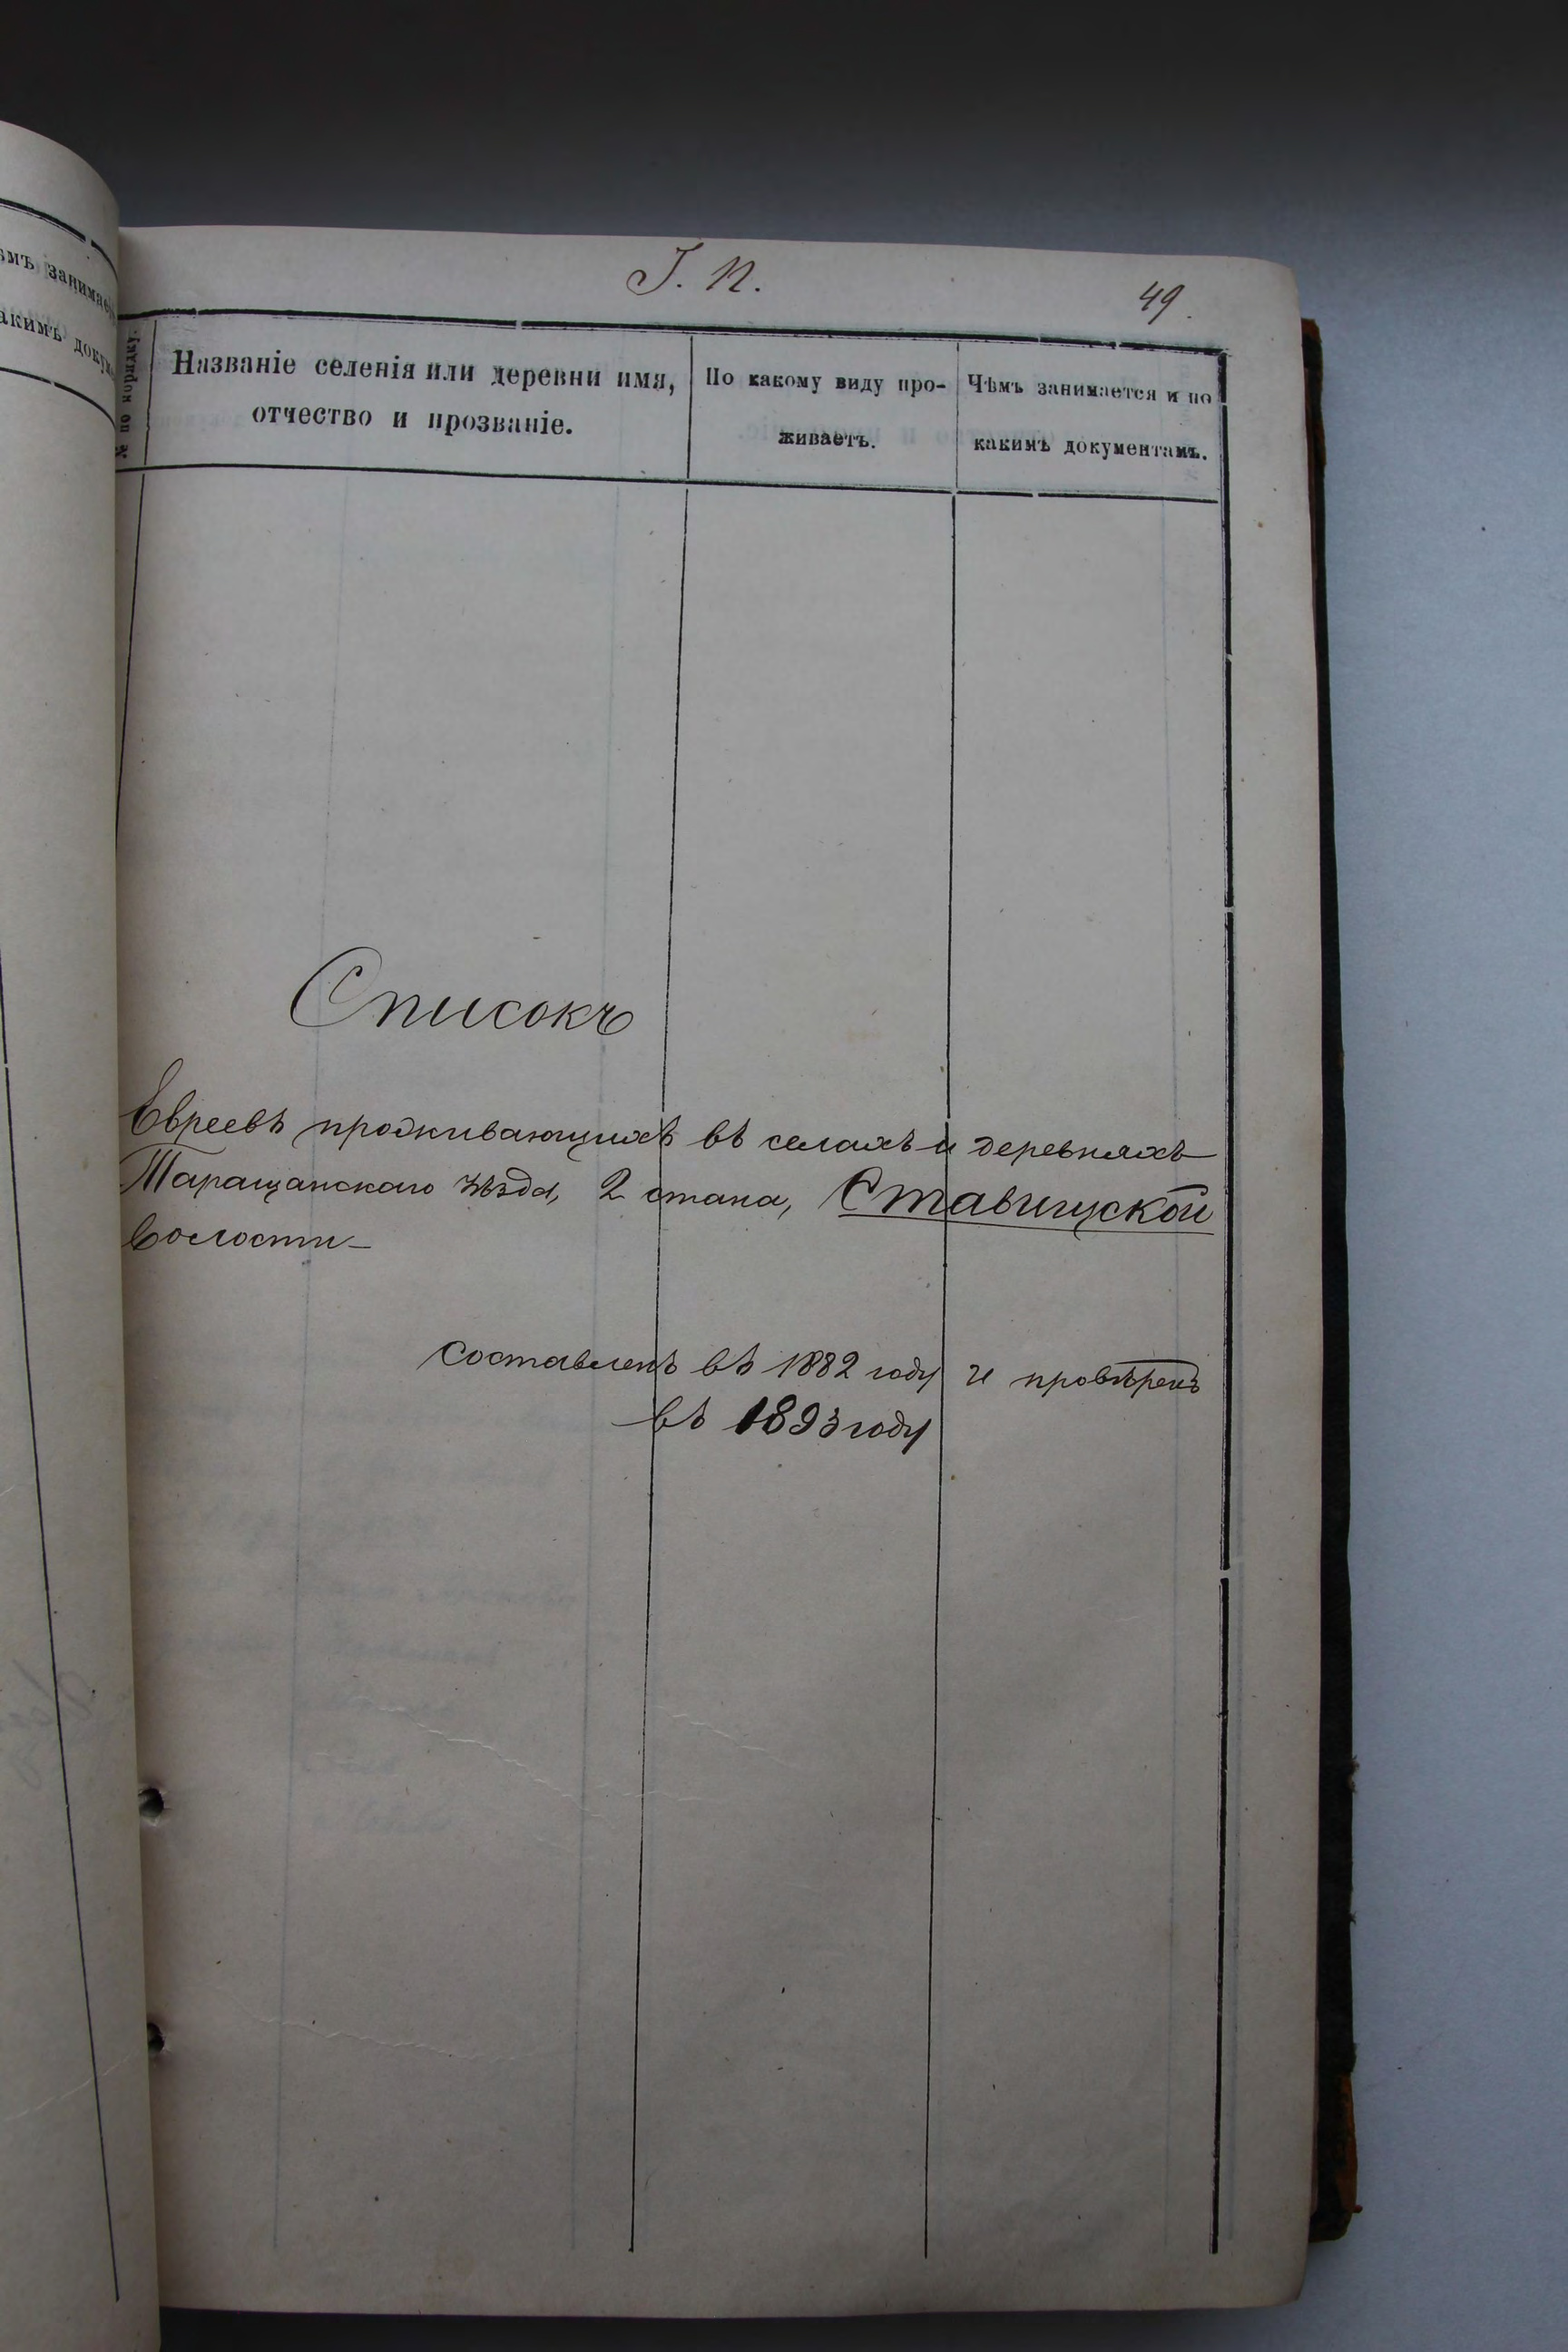 емъ занимает
акимъ докум
І. П.
49.
№ по порядку.
Названіе селенія или деревни имя,
отчество и прозваніе.
По какому виду про-
живаетъ.
Чѣмъ занимается и по
какимъ документамъ.
Списокъ
Евреевъ проживающихъ въ селахъ и деревняхъ
Таращанскаго уѣзда, 2 стана, Ставищской
волости
Составленъ въ 1882 году и провѣренъ
въ 1893 году